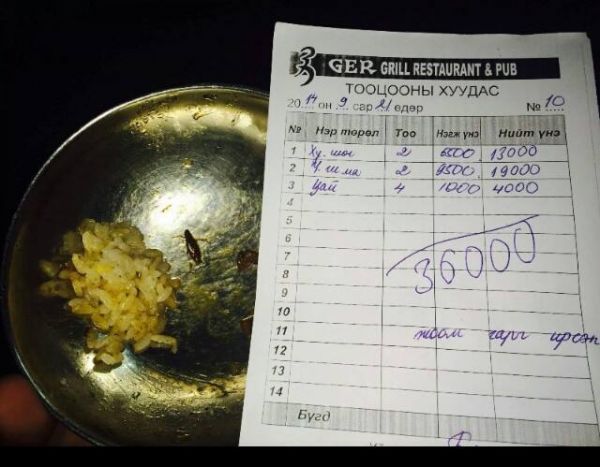 GER GRILL RESTAURANT & PUB
ТООЦООНЫ ХУУДАС
2014 он 9 сар 21 өдөр № 10
№ Нэр төрөл Тоо Нэгж үнэ Нийт үнэ
1 Ху. шөл 2 6500 13000
2 2 9500 19000
3 Цай 4 1000 4000
4
5
6
7
8
36000
9
10
11 жоом гарч ирсэн
12
13
14
Бүгд